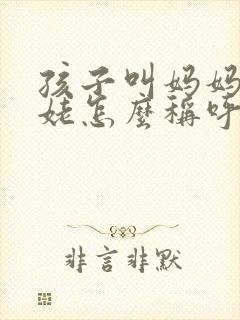 孩子叫妈妈
姥怎麽稱呼
非言非默